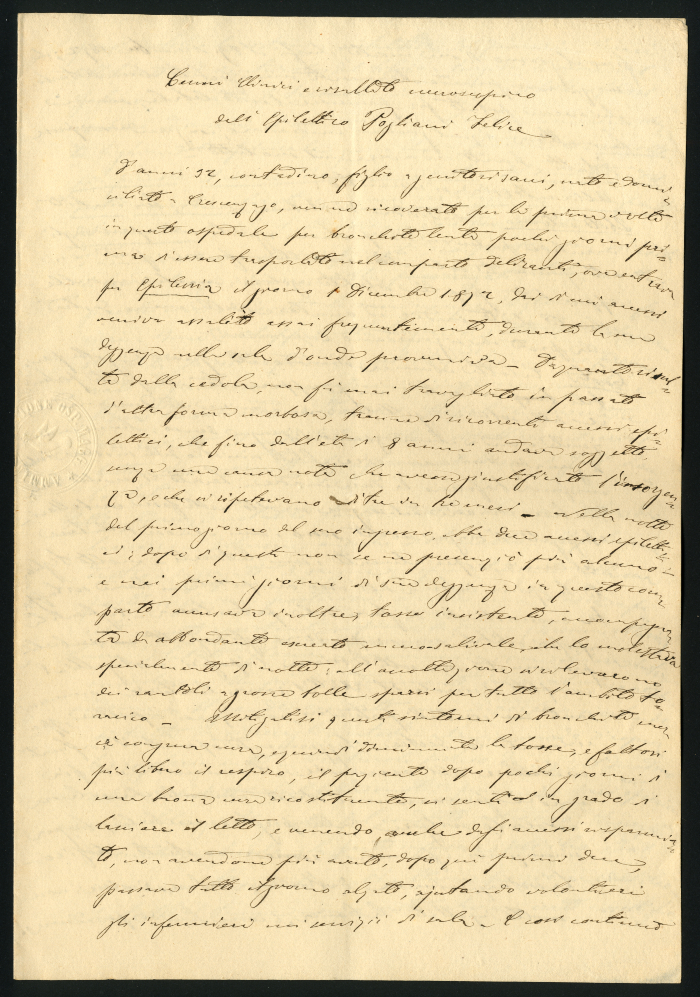 Cenni Clinici e risultato necroscopico
dell'Epilettico Pogliani Felice
D'anni 32, contadino, figlio a genitori sani, nato e domi-
ciliato a Crescenzago, venne ricoverato per la prima volta
in questo ospedale per bronchite lenta pochi giorni pri-
ma d'essere trasportato nel comparto deliranti, ove entrava
per Epilessia il giorno 1 Dicembre 1872, dai di cui accessi
veniva assalito assai frequentemente, durante la sua
degenza nella sala d'onde proveniva - Da quanto risul-
ta dalla cedola, non fu mai travagliato in passato
d'altra forma morbosa, tranne di ricorrenti accessi epi-
lettici, che fino dall'età di 8 anni andava soggetto
senza una causa nota che avesse giustificato l'insorgen-
za, e che si ripetevano di tre in tre mesi - Nella notte
del primo giorno del suo ingresso, ebbe due accessi epiletti-
ci; dopo di questi non se ne presenziò più alcuno -
e nei primi giorni di sua degenza in questo com-
parto accusava inoltre, tosse insistente, accompagna-
ta da abbondante escreato mucoso-salivale, che lo molestava
specialmente di notte; all'ascoltazione si rilevarono
dei rantoli a grosse bolle sparsi per tutto l'ambito to-
racico - Mitigatisi questi sintomi di bronchite mer-
cè congrua cura, e quindi diminuita la tosse, e fattosi
più libero il respiro, il paziente dopo pochi giorni di
una buona cura ricostituente, si sentì in grado di
lasciare il letto, e venendo, anche degli accessi risparmia-
to, non avendone più avuto, dopo quei primi due,
passava tutto il giorno alzato, ajutando volontieri
gli infermieri nei servizi di sala - E così continuò